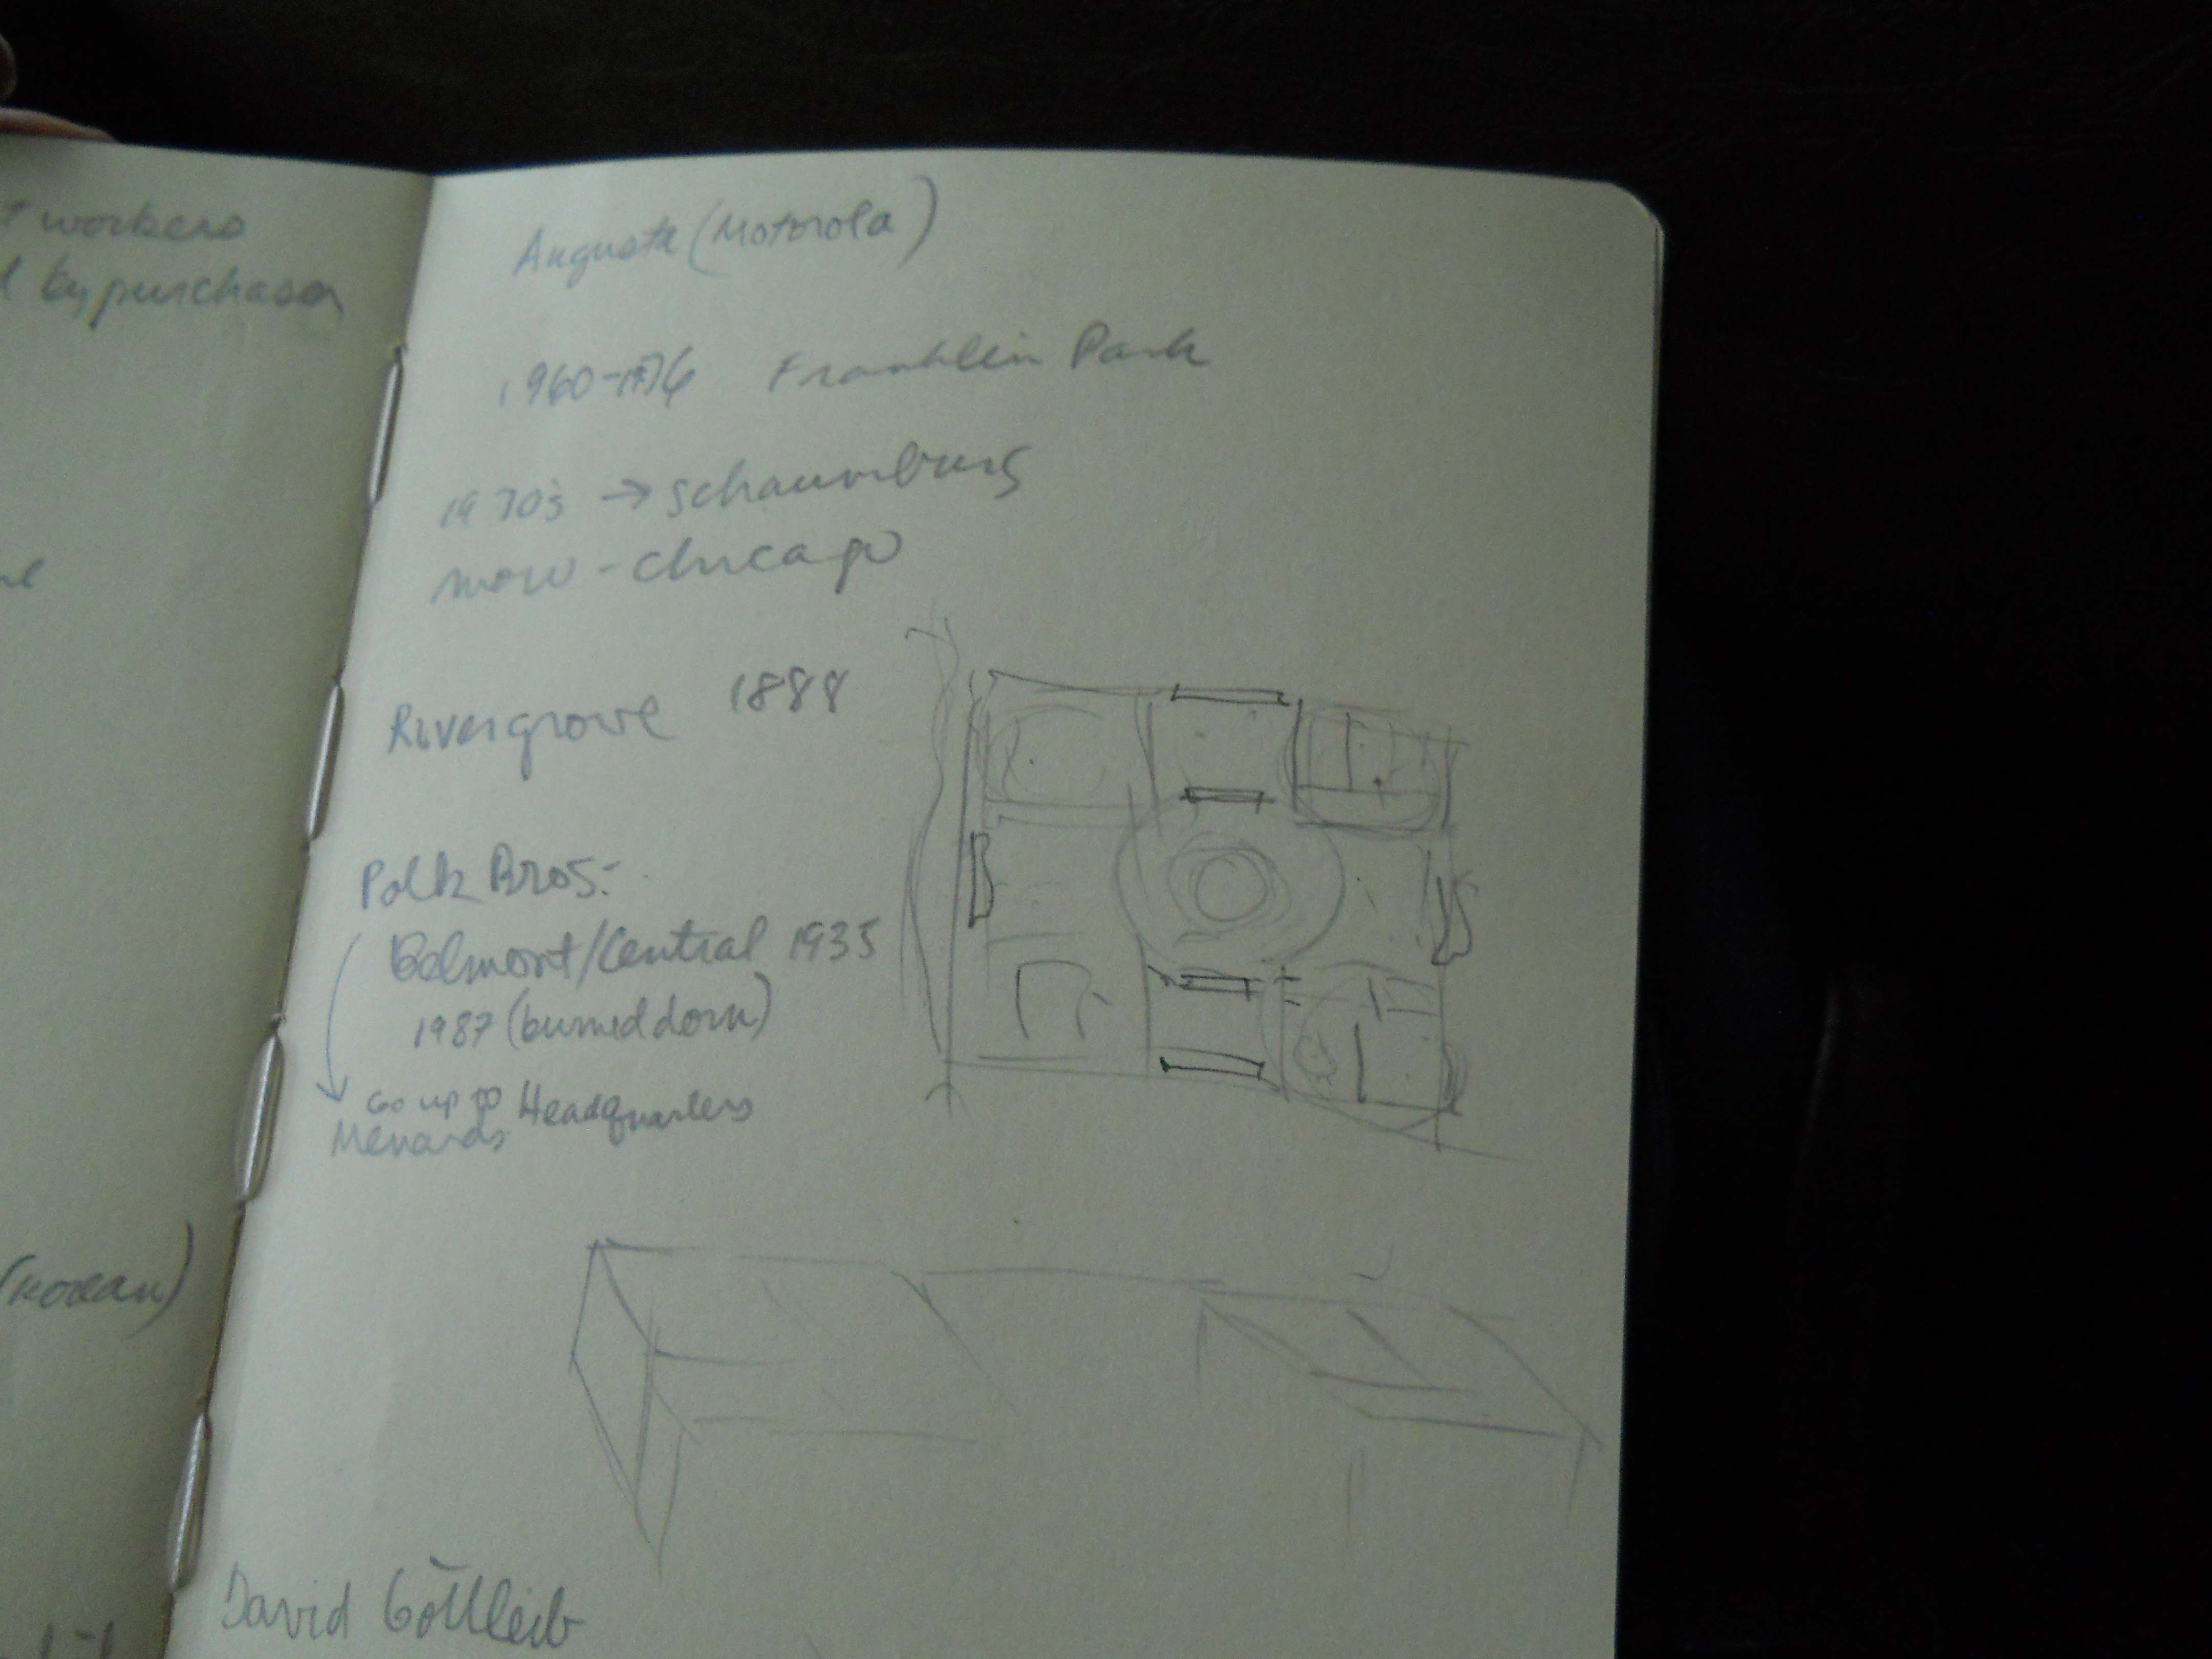 workers
by purchaser
(Korean)
Augusta (Motorola)
1960-1976 Franklin Park
1970's → Schaumburg
now - chicago
Rivergrove 1888
Polk Bros:
Belmont/Central 1935
1987 (burned down)
Go up to Headquarters
Menards
David Gottleib